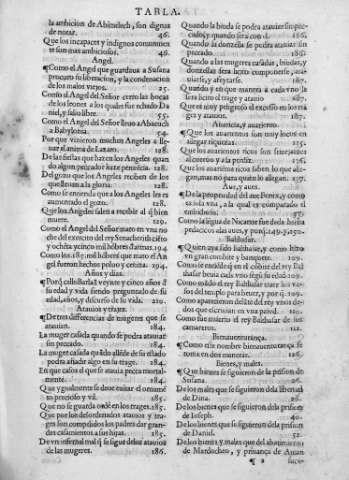 TABLA.
la ambicion de Abimelech, son dignas
de notar. 46.
Que los incapaces y indignos comunmente
son mas ambiciosos. 46.
Angel.
¶Como el Angel que guardaua a Susana
procuro su liberacion, y la condenacion
de los malos viejos. 25.
Como el Angel del Señor cerro las bocas
de los leones a los quales fue echado Daniel,
y salio libre. 55.
Como el Angel del Señor lleuo a Abacuch
a Babylonia. 54.
Por que vinieron muchos Angeles a lleuar
el anima de Lazaro. 128.
De las fiestas que hazen los Angeles quando
algun peccador haze penitencia. 128.
Del gozo que los Angeles reciben de los
que lleuan a la gloria. 128.
Como se entienda que a los Angeles les es
aumentado el gozo. 128.
Que los Angeles salen a recebir al que bien
muere. 129.
Como el Angel del Señor mato en vna noche
del exercito del rey Senacherib ciento
y ochenta y cinco mil hebreos. 194
Como los 185. mil hebreos que mato el Angel
fueron hechos poluo y ceniza. 194.
Años y dias.
su edad y vida siendo preguntado de su
edad, años, y discurso de su vida. 219.
Atauios y trajes.
¶De tres differencias de mugeres que se
atauian. 184.
La muger casada quando se podra atauiar
sin peccado. 184.
podra añadir algo en su traje. 184.
En que casos el que se atauia pecca mortalmente.
184.
Que no se guarda orden en los trages. 185.
Que por los desordenados atauios y trages
son compelidos los padres dar grandes
casamientos a sus hijas. 185.
de las mugeres. 186.
Quando la biuda se podra atauiar sin peccado,
y quando sera con el. 186.
Quando la donzella se podra atauiar sin
peccado. 186.
Quando a las mugeres casadas, biudas, y
donzellas sera licito componerse, atauiarse,
y afeytarse. 187.
Quando y en que manera a cada vno la
sera licito el trage y atauio 187.
Que es muy peligroso el excesso en los trages
y atauios. 187.
Auaricia, y auariento.
¶Que los auarientos son muy locos en
allegar riquezas. 125.
Que los auarientos ricos son semejantes
176.
Que los auarientos ricos no saben lo que allegan,
mas no para quien lo allegan. 137.
Aue, y aues.
¶De la propriedad del aue Fenix, y como
es sola vna, a la qual es comparado el
embidioso. 37.
Balthasar.
¶Quien aya sido Balthasar, y como hizo
vn gran combite y banquete. 109.
Como mando el rey Balthasar traer los vasos
del templo para beuer, y por que. 109.
Como aparecieron delante del rey vnos dedos
que escriuian en vna pared. 110.
Como fue muerto el rey Balthasar de sus
camareros. 112.
Bienauenturança.
¶Como este nombre bienauenturança se
toma en dos maneras. 126.
Bienes, y males.
¶Que bienes se siguieron de la prision de
Susana. 26.
De los males que se siguieron de la libertad
de Dina. 26.
De los bienes que se siguieron de la prision
de Ioseph. 40.
De los bienes que se siguieron de la prision
de Daniel. 52.
De los bienes, y males que del abatimiento
de Mardocheo, y priuança de Aman